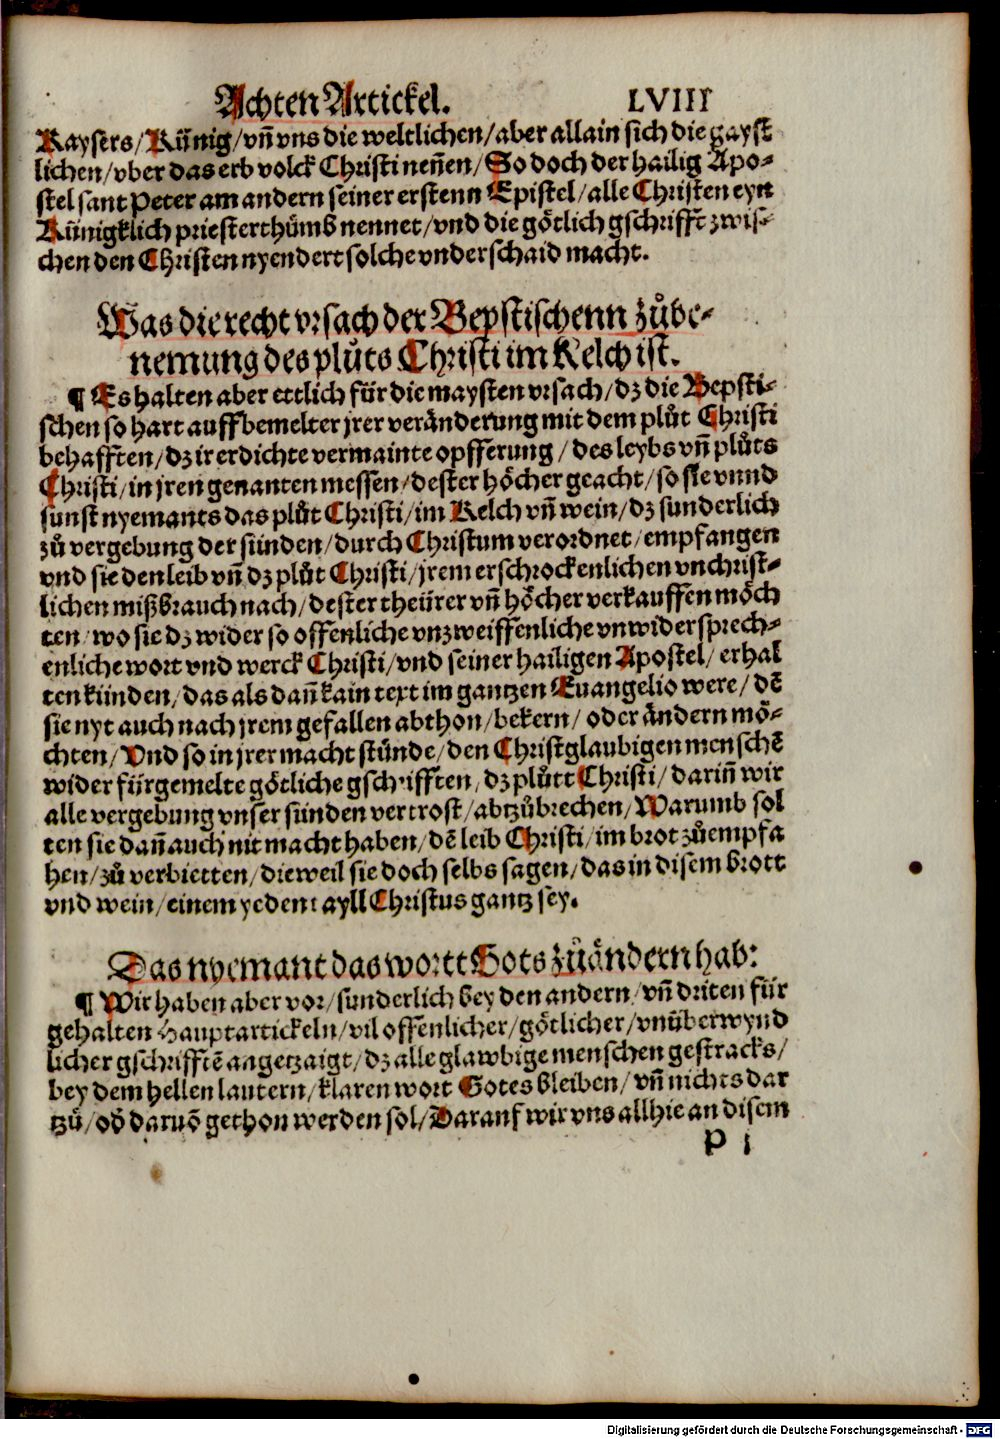 Achten Artickel. LVIII
Kaysers/Künig/vñ vns die weltlichen/aber allain sich die gayst
lichen/vber das erb volck Christi neñen/So doch der hailig Apo-
stel sant Peter am andern seiner erstenn Epistel/alle Christen eyn
Künigklich priesterthůmb nennet/vnd die götlich gschrifft zwis-
chen den Christen nyendert solche vnderschaid macht.
Was die recht vrsach der Bepstischenn zůbe-
nemung des plůts Christi im Kelch ist.
¶ Es halten aber ettlich für die maysten vrsach/dz die Bepsti-
schen so hart auff bemelter jrer veränderung mit dem plůt Christi
behafften/dz ir erdichte vermainte opfferung/des leybs vñ plůts
Christi/in jren genanten messen/dester höcher geacht/so sie vnnd
sunst nyemants das plůt Christi/im Kelch vñ wein/dz sunderlich
zů vergebung der sünden/durch Christum verordnet/empfangen
vnd sie den leib vñ dz plůt Christi/jrem erschrockenlichen vnchrist-
lichen mißbrauch nach/dester theürer vñ höcher verkauffen möch
ten/wo sie dz wider so offenliche vnzweiffenliche vnwidersprech-
enliche wort vnd werck Christi/vnd seiner hailigen Apostel/erhal
ten künden/das als dañ kain text im gantzen Euangelio were/dē
sie nyt auch nach jrem gefallen abthon/bekern/oder ändern mö-
chten/Vnd so in jrer macht stünde/den Christglaubigen menschē
wider fürgemelte götliche gschrifften/dz plůtt Christi/dariñ wir
alle vergebung vnser sünden vertrost/abtzůbrechen/Warumb sol
ten sie dañ auch nit macht haben/dē leib Christi/im brot zůempfa
hen/zů verbietten/dieweil sie doch selbs sagen/das in disem brott
vnd wein/einem yedem tayll Christus gantz sey.
Das nyemant das wortt Gots zůändern hab:
¶ Wir haben aber vor/sunderlich bey den andern/vñ driten für
gehalten Hauptartickeln/vil offenlicher/götlicher/vnüberwynd
licher gschrifftē angetzaigt/dz alle glawbige menschen gestracks/
bey dem hellen lautern/klaren wort Gotes bleiben/vñ nichts dar
tzů/oď daruō gethon werden sol/Darauf wir vns allhie an disem
P j
Digitalisierung gefördert durch die Deutsche Forschungsgemeinschaft - DFG